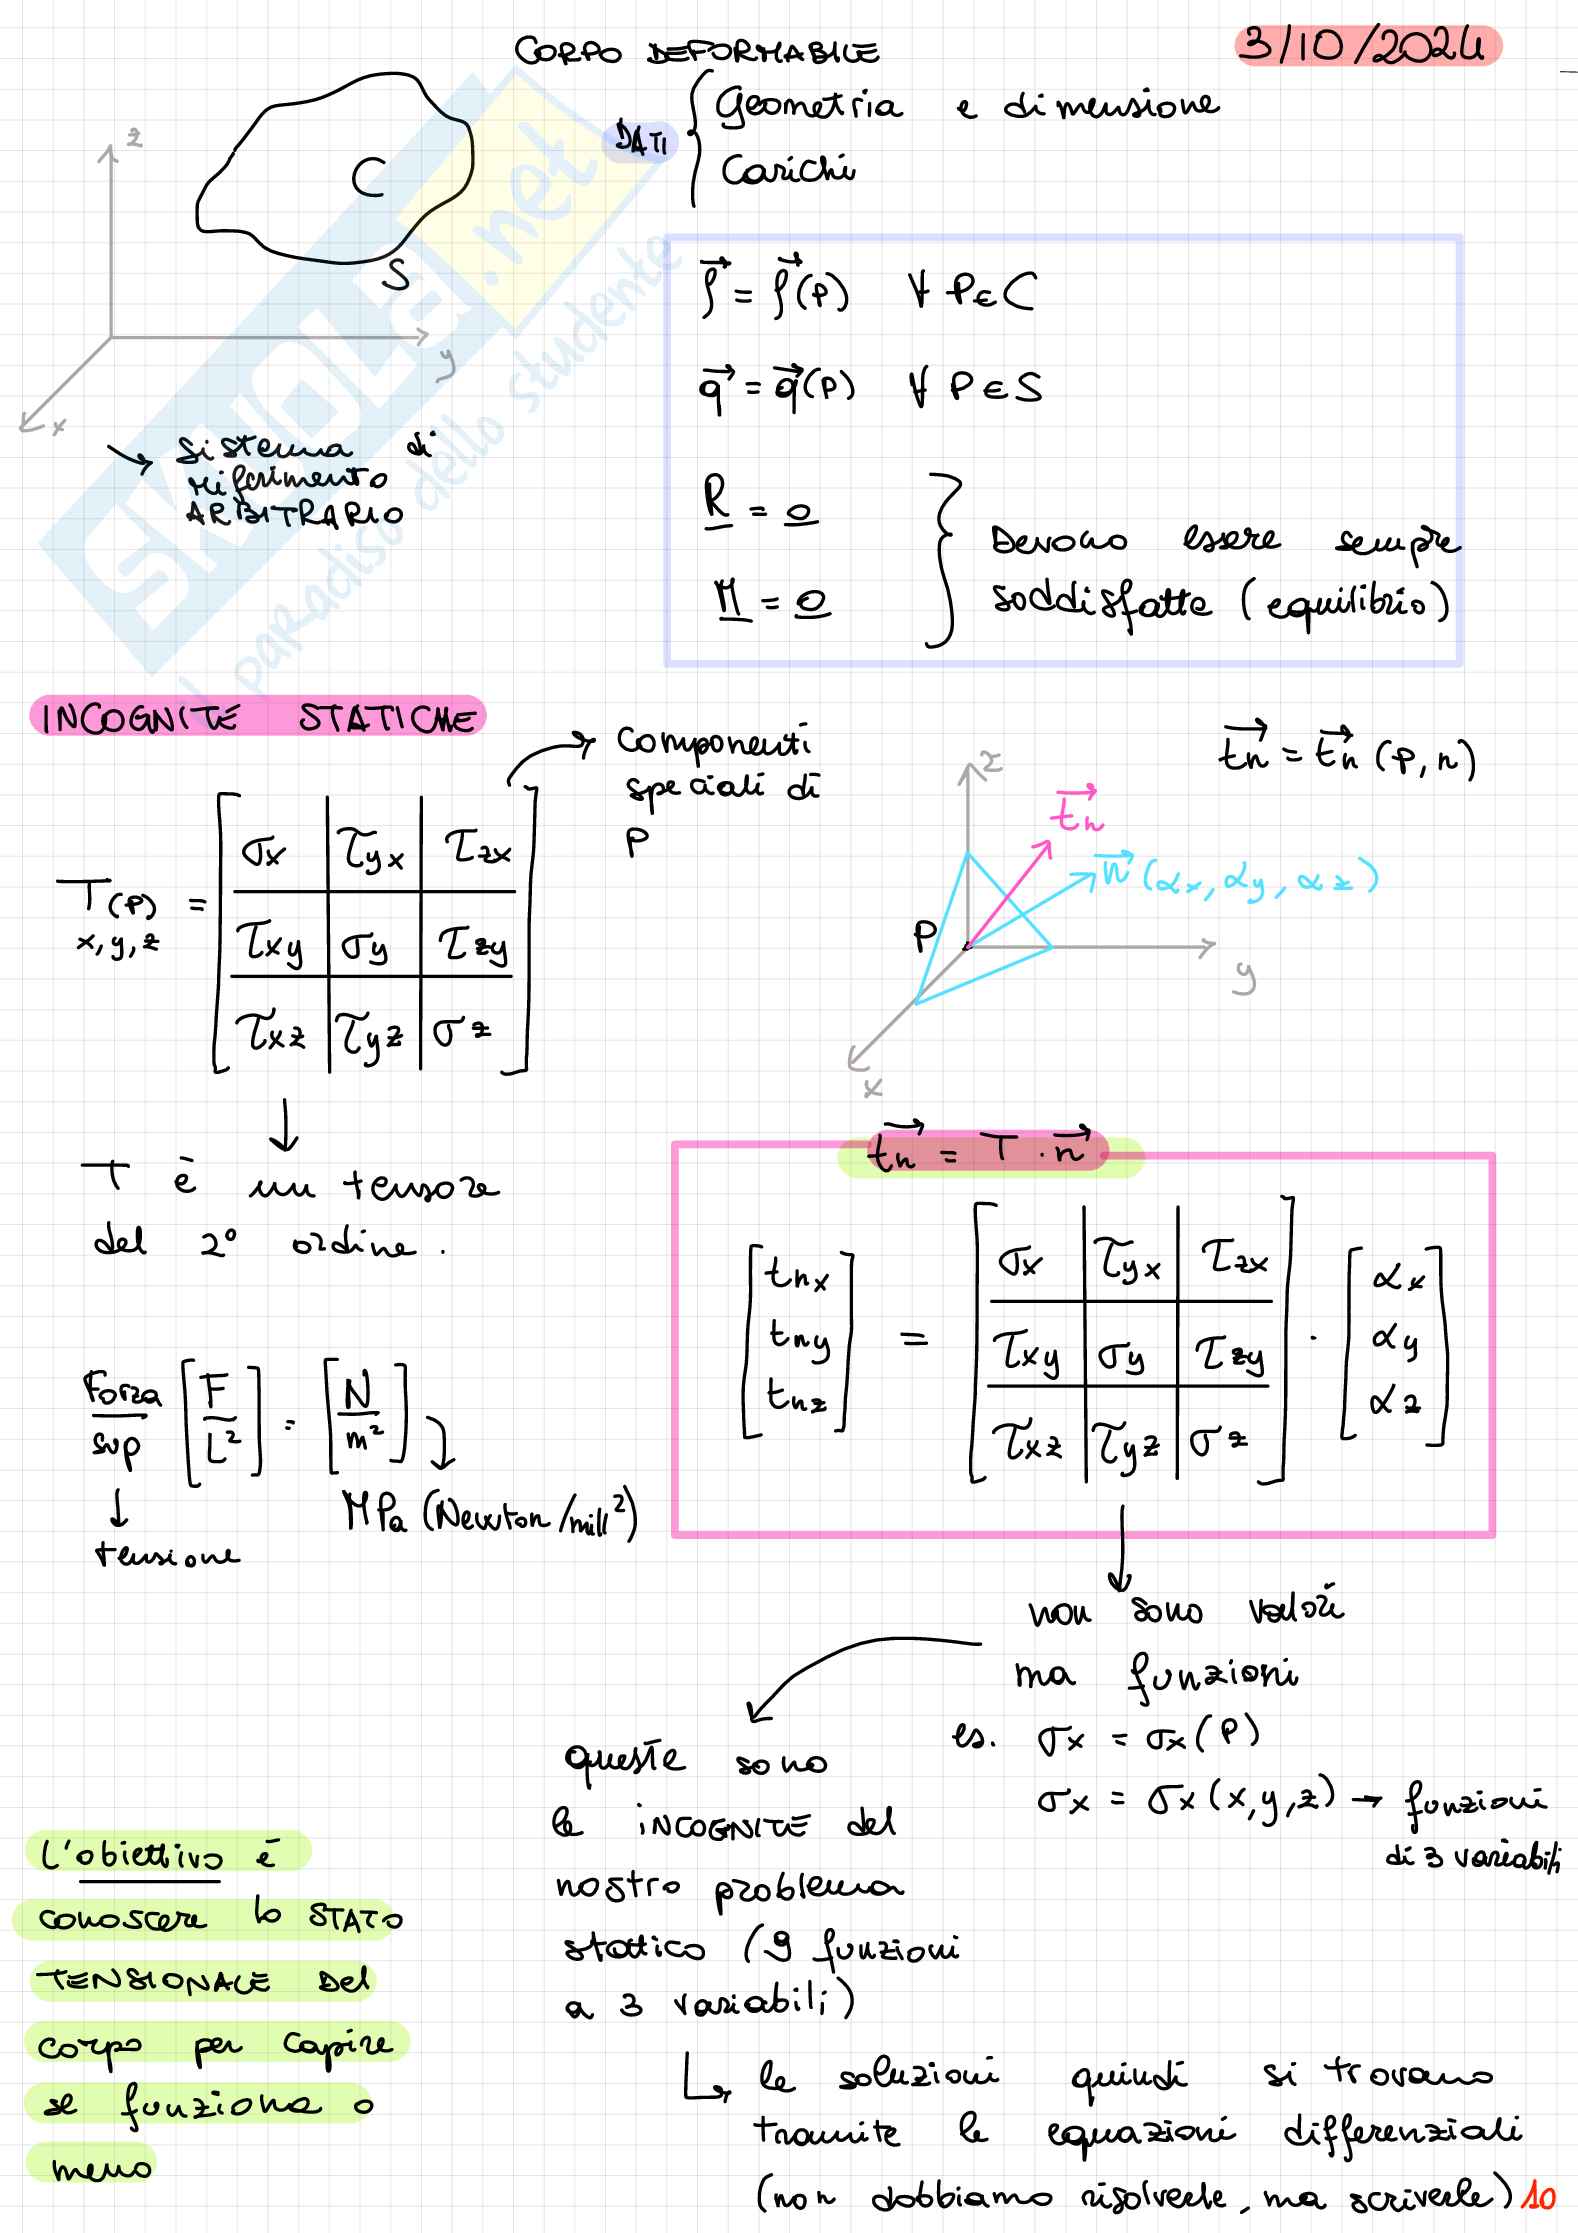 CORPO DEFORMABILE
3/10/2024
DATI
Geometria e dimensione
Carichi
z
C
S
y
x
sistema di
riferimento
ARBITRARIO
f⃗ = f⃗(P) ∀ P∈C
q⃗ = q⃗(P) ∀ P∈S
R = 0
M = 0
Devono essere sempre
soddisfatte (equilibrio)
SKUOLA.net
il paradiso dello studente
INCOGNITE STATICHE
componenti
speciali di
P
T(P) =
x,y,z
σx τyx τzx
τxy σy τzy
τxz τyz σz
t⃗n = t⃗n (P,n)
z
t⃗n
n⃗ (αx, αy, αz)
P
y
x
T è un tensore
del 2° ordine.
t⃗n = T · n⃗
[tnx tny tnz] =
σx τyx τzx
τxy σy τzy
τxz τyz σz
· [αx αy αz]
Forza/sup [F/L²] = [N/m²]
MPa (Newton/mill²)
tensione
non sono valori
ma funzioni
es. σx = σx(P)
σx = σx(x,y,z) → funzioni
di 3 variabili
queste sono
le INCOGNITE del
nostro problema
statico (9 funzioni
a 3 variabili)
L'obiettivo è
conoscere lo STATO
TENSIONALE Del
corpo per capire
se funziona o
meno
le soluzioni quindi si trovano
tramite le equazioni differenziali
(non dobbiamo risolverle, ma scriverle)
10